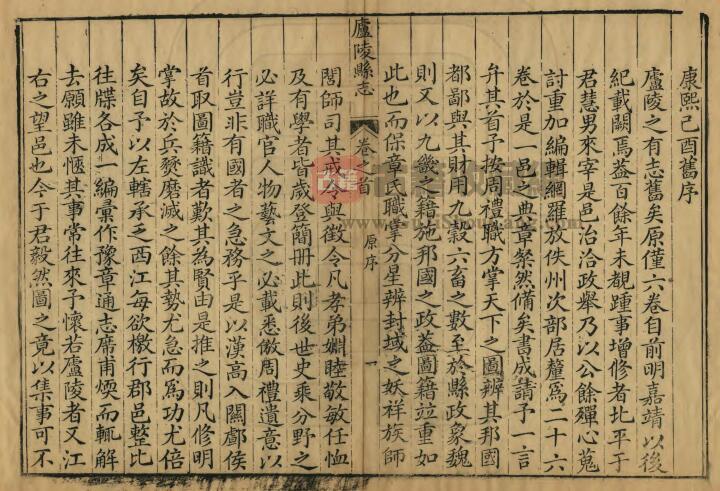 康熙己酉舊序
廬陵之有志舊矣原僅六卷自前明嘉靖以後
紀載闕焉益百餘年未覩踵事增修者比平于
君慧男來宰是邑治洽政舉乃以公餘殫心蒐
討重加編輯網羅放佚州次部居釐爲二十六
卷於是一邑之典章粲然備矣書成請予一言
弁其首予按周禮職方掌天下之圖辨其邦國
都鄙與其財用九穀六畜之數至於縣政象魏
則又以九畿之籍施邦國之政葢圖籍竝重如
此也而保章氏職掌分星辨封域之妖祥族師
廬陵縣志
卷之首
原序
一
閭師司其戒令與徵令凡孝弟婣睦敬敏任恤
及有學者皆歲登簡冊此則後世史乘分野之
必詳職官人物藝文之必載悉倣周禮遺意以
行豈非有國者之急務乎是以漢高入關酇侯
首取圖籍識者歎其爲賢由是推之則凡修明
掌故於兵燹磨滅之餘其勢尤急而爲功尤倍
矣自予以左轄承乏西江每欲檄行郡邑整比
往牒各成一編彙作豫章通志席甫煗而輒解
去願雖未愜其事常往來予懷若廬陵者又江
右之望邑也今于君毅然圖之竟以集事可不